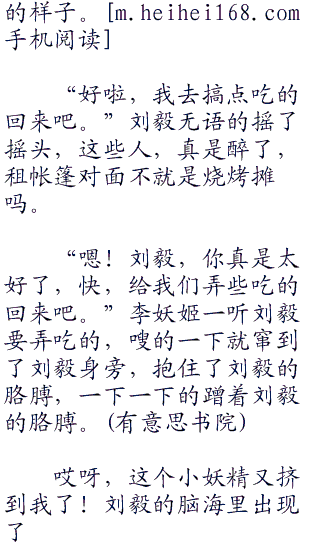 的样子。[m.heihei168.com
手机阅读]
“好啦，我去搞点吃的
回来吧。”刘毅无语的摇了
摇头，这些人，真是醉了，
租帐篷对面不就是烧烤摊
吗。
“嗯！刘毅，你真是太
好了，快，给我们弄些吃的
回来吧。”李妖姬一听刘毅
要弄吃的，嗖的一下就窜到
了刘毅身旁，抱住了刘毅的
胳膊，一下一下的蹭着刘毅
的胳膊。(有意思书院)
哎呀，这个小妖精又挤
到我了！刘毅的脑海里出现
了